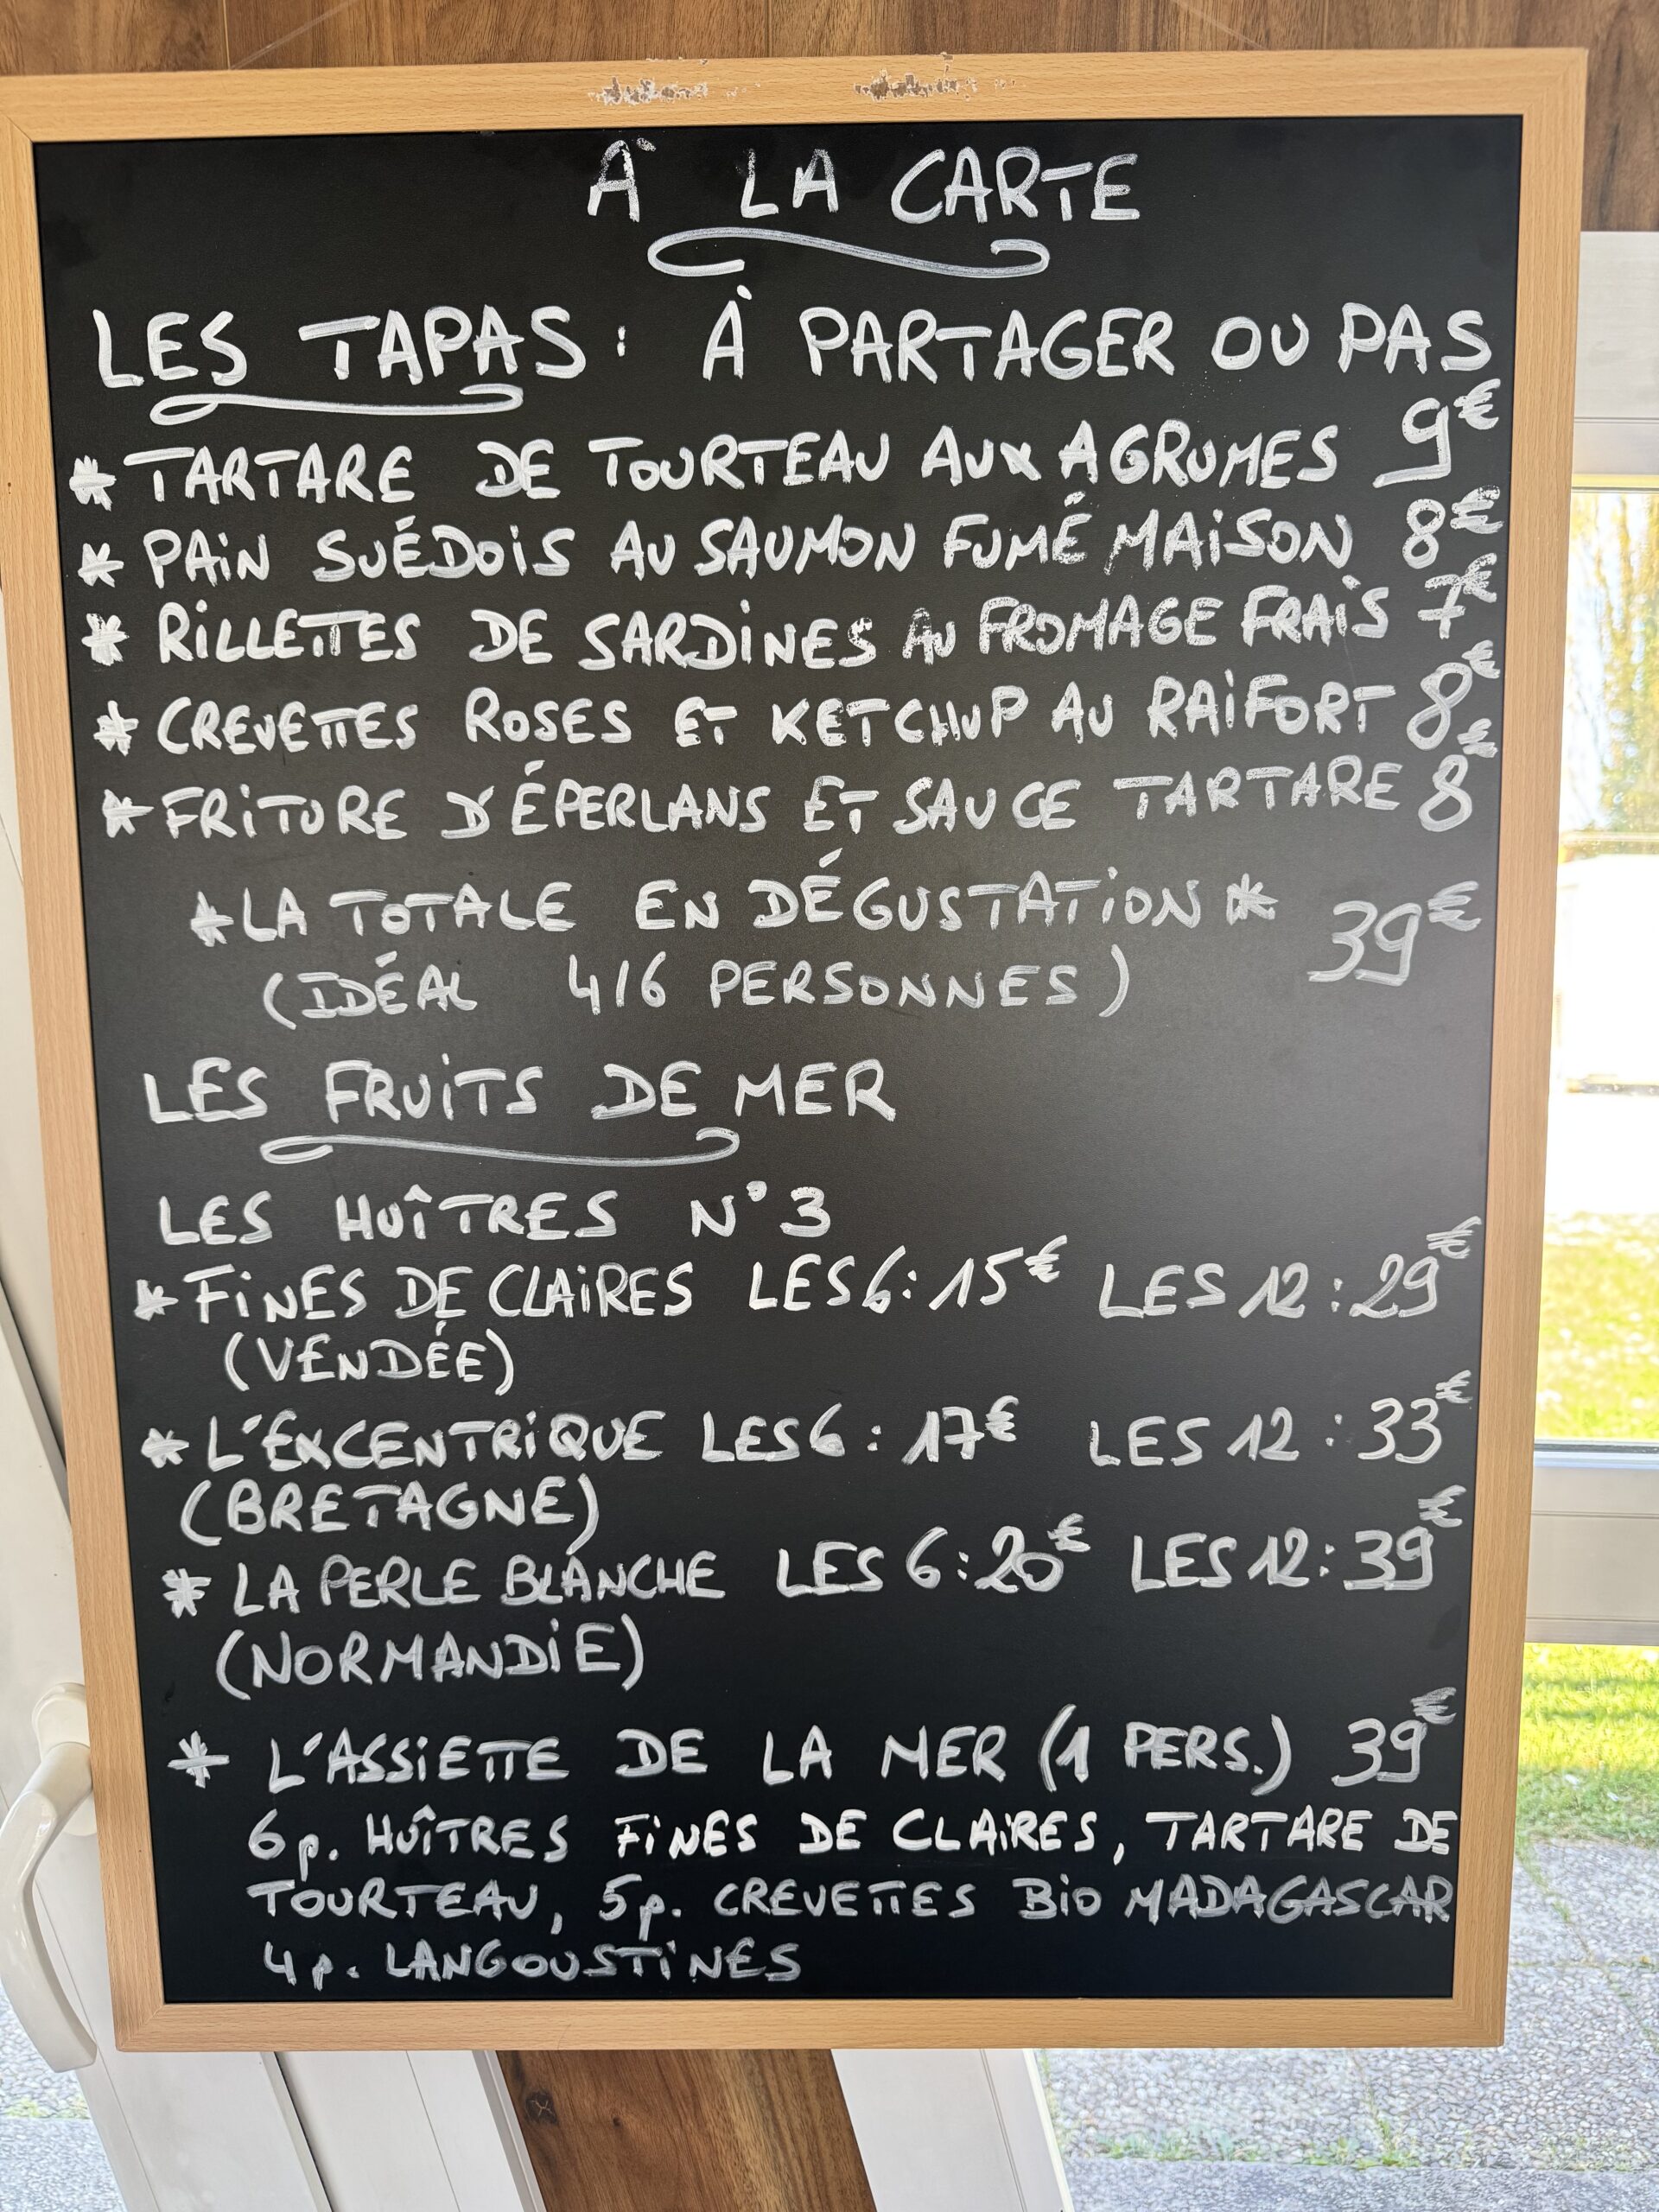 À LA CARTE
LES TAPAS : À PARTAGER OU PAS
* TARTARE DE TOURTEAU AUX AGRUMES 9€
* PAIN SUÉDOIS AU SAUMON FUMÉ MAISON 8€
* RILLETTES DE SARDINES AU FROMAGE FRAIS 7€
* CREVETTES ROSES ET KETCHUP AU RAIFORT 8€
* FRITURE D'ÉPERLANS ET SAUCE TARTARE 8€
* LA TOTALE EN DÉGUSTATION * 39€
(IDÉAL 4/6 PERSONNES)
LES FRUITS DE MER
LES HUÎTRES N°3
* FINES DE CLAIRES LES 6 : 15€ LES 12 : 29€
(VENDÉE)
* L'EXCENTRIQUE LES 6 : 17€ LES 12 : 33€
(BRETAGNE)
* LA PERLE BLANCHE LES 6 : 20€ LES 12 : 39€
(NORMANDIE)
* L'ASSIETTE DE LA MER (1 PERS.) 39€
6p. HUÎTRES FINES DE CLAIRES, TARTARE DE
TOURTEAU, 5p. CREVETTES BIO MADAGASCAR
4p. LANGOUSTINES